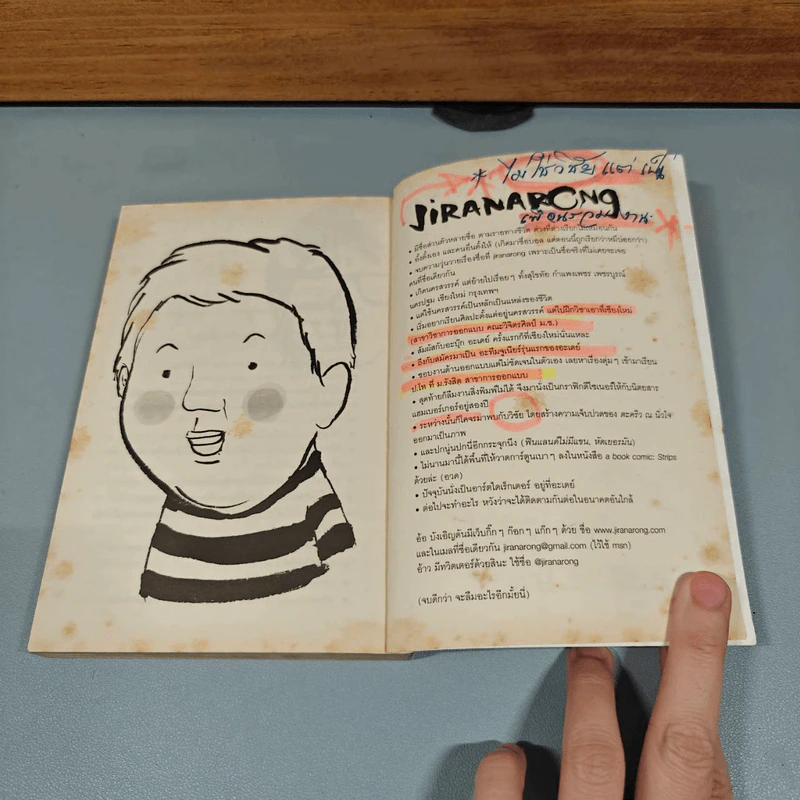 * ไม่ใช่วิชัย แต่ เป็น
JiRANARONg
เพื่อนร่วมงาน
• มีชื่อด้านตัวหลายชื่อ ตามรายทางชีวิต ต่างที่ต่างเรียกไม่เหมือนกัน
• ทั้งตั้งเอง และคนอื่นตั้งให้ (เกิดมาชื่อบอล แต่ตอนนี้ถูกเรียกว่าหมีบ่อยกว่า)
• จบความวุ่นวายเรื่องชื่อที่ jiranarong เพราะเป็นชื่อจริงที่ไม่เคยจะเจอ
คนที่ชื่อเดียวกัน
• เกิดนครสวรรค์ แต่ย้ายไปเรื่อยๆ ทั้งสุโขทัย กำแพงเพชร เพชรบูรณ์
นครปฐม เชียงใหม่ กรุงเทพฯ
• แต่ใช้นครสวรรค์เป็นหลักเป็นแหล่งของชีวิต
• เริ่มอยากเรียนศิลปะตั้งแต่อยู่นครสวรรค์ แต่ไปฝึกวิชาเอาที่เชียงใหม่
(สาขาวิชาการออกแบบ คณะวิจิตรศิลป์ ม.ช.)
• สัมผัสกับอะบุ๊ก อะเดย์ ครั้งแรกก็ที่เชียงใหม่นั่นแหละ
• ถึงกับสมัครมาเป็น อะทีมจูเนียร์รุ่นแรกของอะเดย์
• ชอบงานด้านออกแบบแต่ไม่ชัดเจนในตัวเอง เลยหาเรื่องคุ่มๆ เข้ามาเรียน
ป.โท ที่ ม.รังสิต สาขาการออกแบบ
• สุดท้ายก็ลืมงานสิ่งพิมพ์ไม่ได้ จึงมานั่งเป็นกราฟิกดีไซเนอร์ให้กับนิตยสาร
แฮมเบอร์เกอร์อยู่สองปี
• ระหว่างนั้นก็โคจรมาพบกับวิชัย โดยสร้างความเจ็บปวดของ ตะคริว ณ นิ้วใจ
ออกมาเป็นภาพ
• และปกนู่นปกนี่อีกกระจุกนึง (ฟินแลนด์ไม่มีแขน, หัดเยอรมัน)
• ไม่นานมานี้ได้พื้นที่ให้วาดการ์ตูนเบาๆ ลงในหนังสือ a book comic: Strips
ด้วยล่ะ (อวด)
• ปัจจุบันนั่งเป็นอาร์ตไดเร็กเตอร์ อยู่ที่อะเดย์
• ต่อไปจะทำอะไร หวังว่าจะได้ติดตามกันต่อในอนาคตอันใกล้
อ้อ บังเอิญดันมีเว็บกิ๊กๆ ก๊อกๆ แก๊กๆ ด้วย ชื่อ www.jiranarong.com
และในเมลที่ชื่อเดียวกัน jiranarong@gmail.com (ไว้ใช้ msn)
อ้าว มีทวิตเตอร์ด้วยสินะ ใช้ชื่อ @jiranarong
(จบดีกว่า จะลืมอะไรอีกมั้ยนี่)